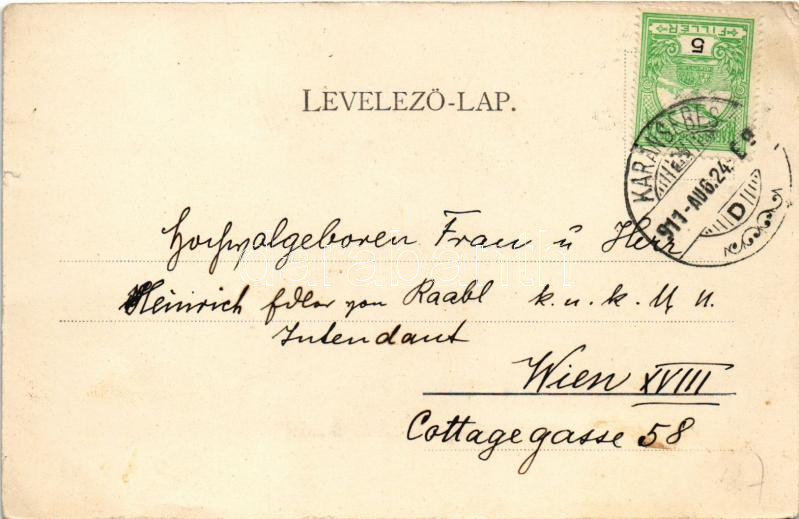 5
FILLER
LEVELEZŐ-LAP.
KARÁNSEBES
911-AUG.24.
D
Hochwolgeboren Frau u Herr
Heinrich Edler von Raabl k. u. k. M u.
Intendant
Wien XVIII
Cottagegasse 58
darabanth